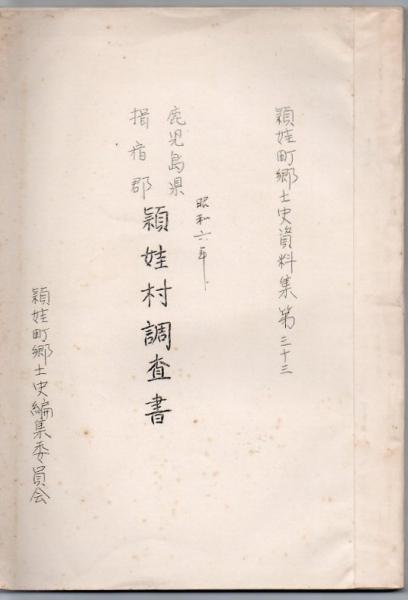 頴娃町郷土史資料集第三十三
昭和六年
鹿児島県
揖宿郡
頴娃村調査書
頴娃町郷土史編集委員会